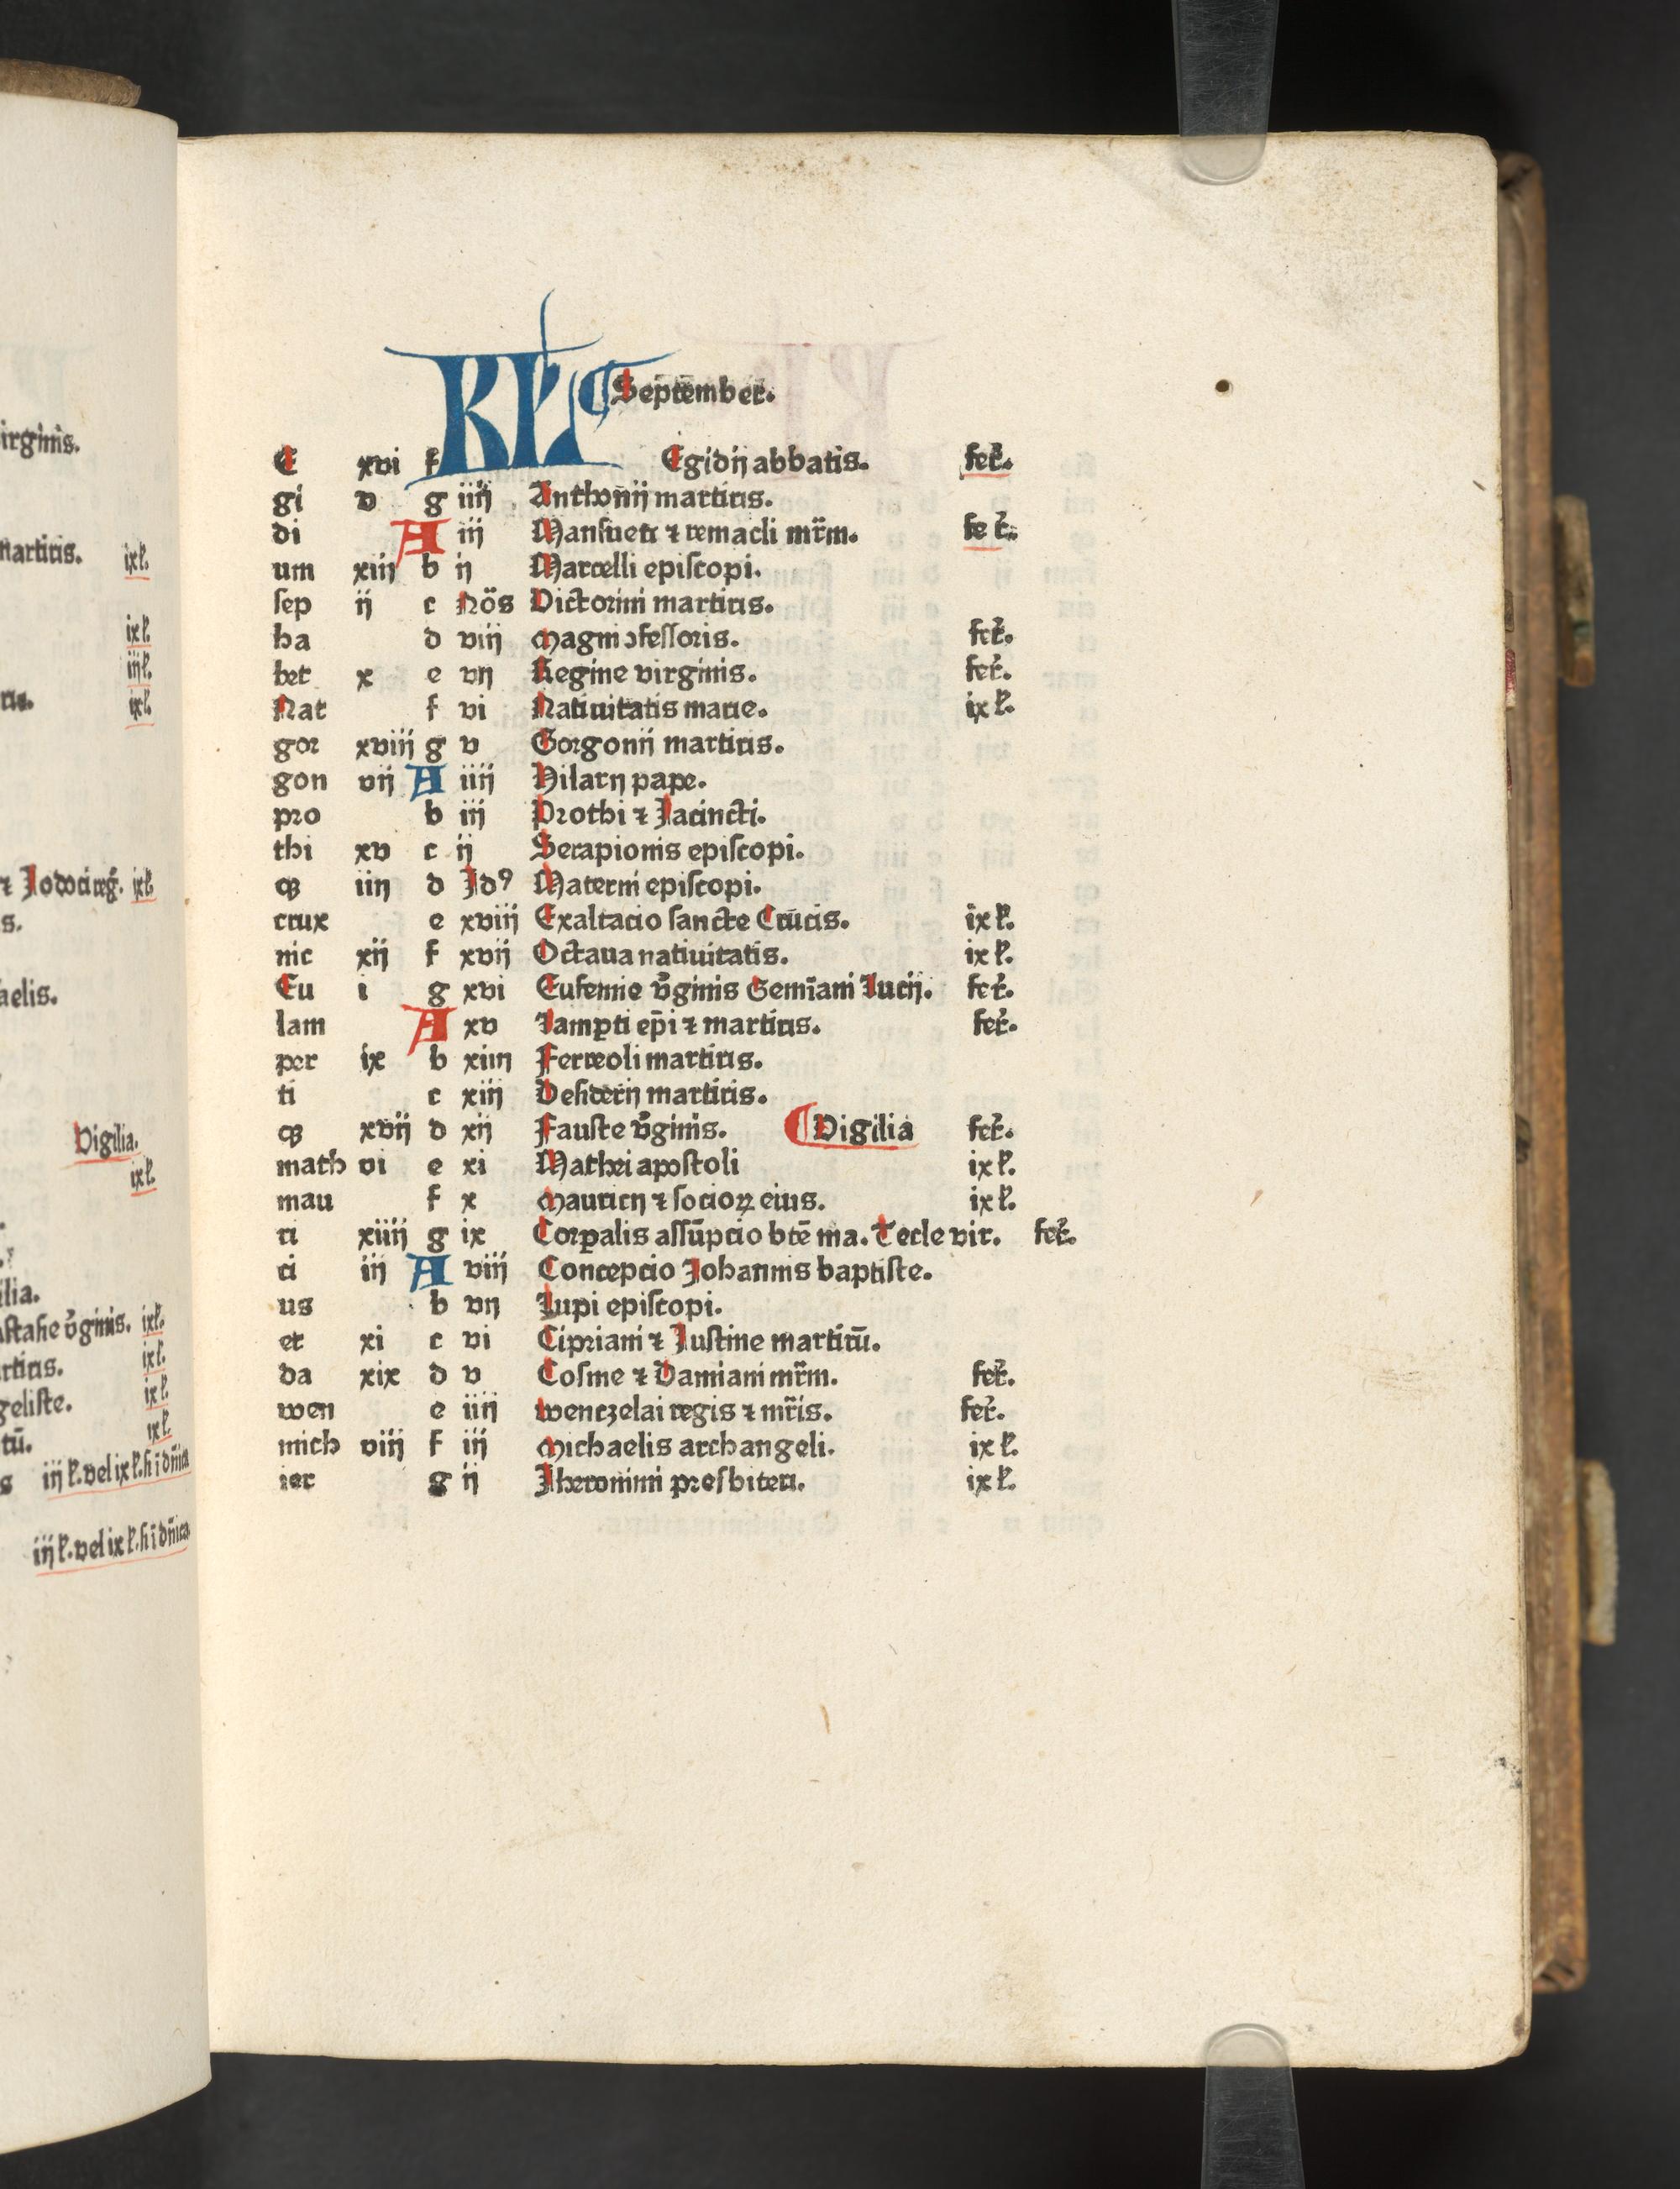 irginis.
martiris. ixl.
ixl.
iijl.
ris. ixl.
⁊ Jodoci reg. ixl.
s.
aelis.
Vigilia.
ixl.
ilia.
astasie v̓ginis. ixl.
rtiris. ixl.
geliste. ixl.
tū. ixl.
s iij l. vel ix l. si ī dn̄ica
iij l. vel ix l. si ī dn̄ica
KL September.
E xvi f Egidij abbatis. fer̛.
gi v g iiij Anthonij martiris.
di A iij Mansueti ⁊ remacli mr̄m. fer̛.
um xiij b ij Marcelli episcopi.
sep ij c Nōs Victorini martiris.
ba d viij Magni ↄfessoris. fer̛.
bet x e vij Regine virginis. fer̛.
Nat f vi Natiuitatis marie. ix l.
gor xviij g v Gorgonij martiris.
gon vij A iiij Hilarij pape.
pro b iij Prothi ⁊ Jacincti.
thi xv c ij Serapionis episcopi.
qꝫ iiij d Jdꝰ Materni episcopi.
crux e xviij Exaltacio sancte Crucis. ix l.
nic xij f xvij Octaua natiuitatis. ix l.
Eu i g xvi Eufemie v̓ginis Gemīani Lucij. fer̛.
lam A xv Lamꝑti ep̄i ⁊ martiris. fer̛.
per ix b xiiij Ferreoli martiris.
ti c xiij Desiderij martiris.
qꝫ xvij d xij Fauste v̓ginis. Vigilia fer̛.
math vi e xi Mathei apostoli ix l.
mau f x Mauricij ⁊ socioꝝ eius. ix l.
ri xiiij g ix Corꝑalis assūpcio btē ma. Tecle vir. fer̛.
ci iij A viij Concepcio Johannis baptiste.
us b vij Lupi episcopi.
et xi c vi Cipriani ⁊ Justine martirū.
da xix d v Cosme ⁊ Damiani mr̄m. fer̛.
wen e iiij wenczelai regis ⁊ mr̄is. fer̛.
mich viij f iij Michaelis archangeli. ix l.
ier g ij Jheronimi presbiteri. ix l.